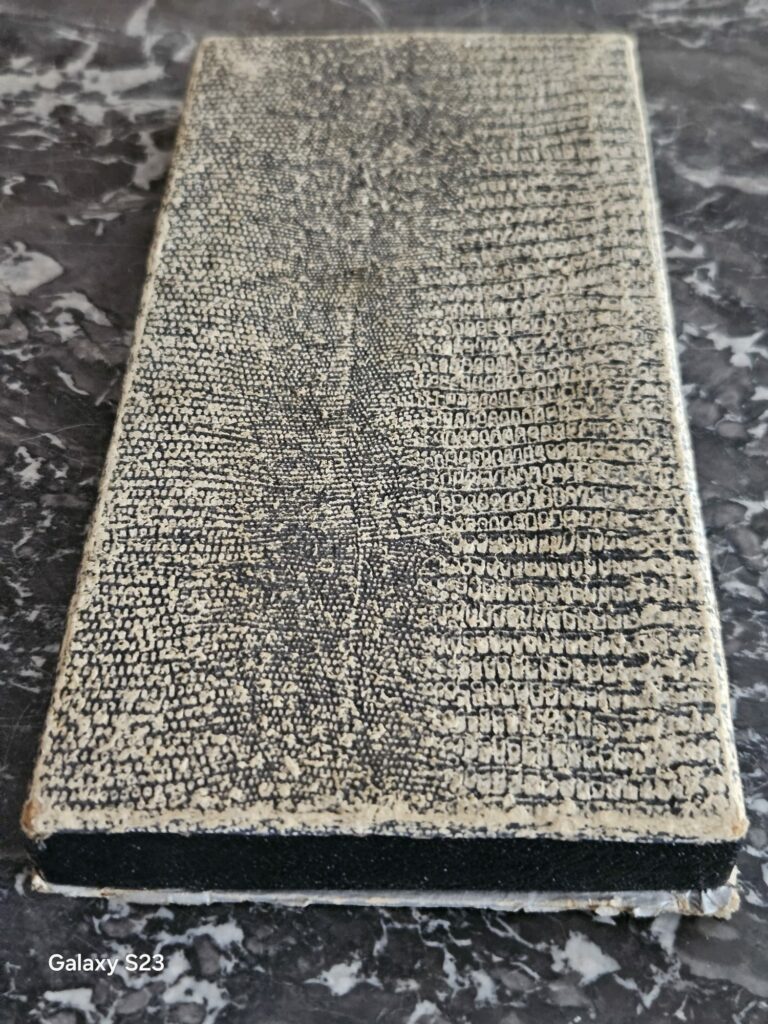 Galaxy S23